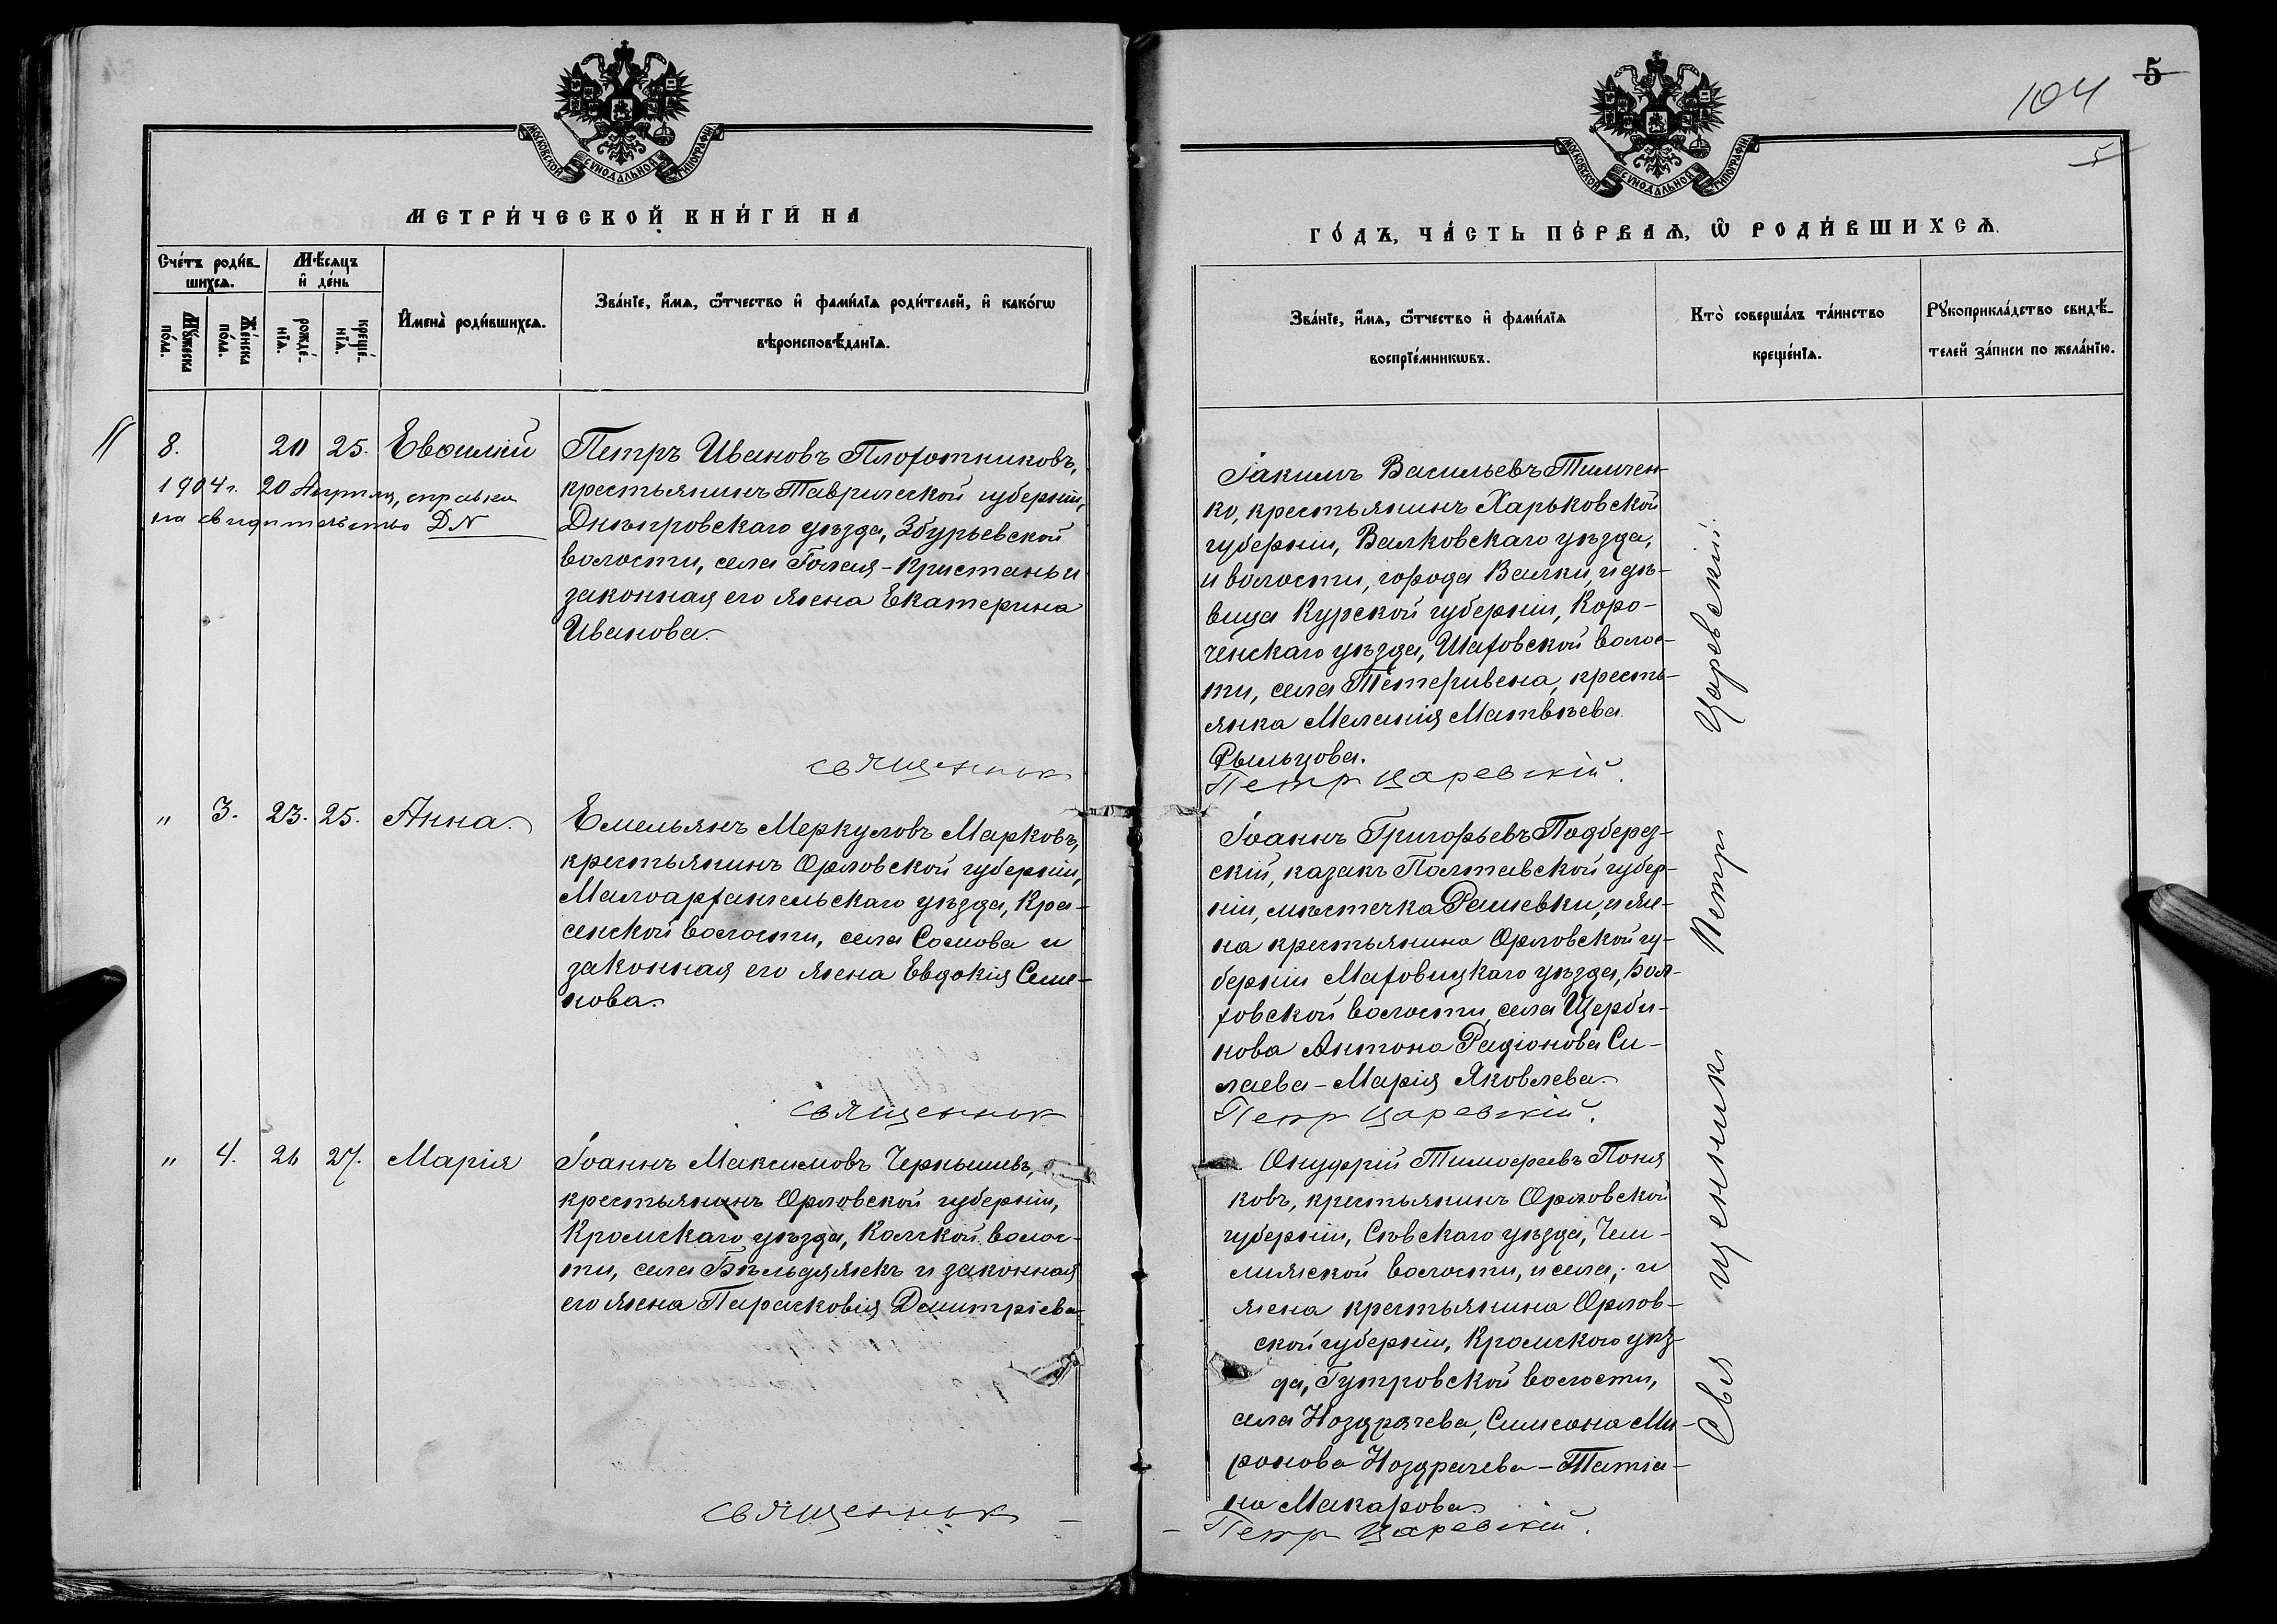 МОСКОВСКОЙ СѴНОДАЛЬНОЙ ТИПОГРАФІИ
МЕТРИ́ЧЕСКОЙ КНИ́ГИ НА
Сче́тъ роди́в-
шихсѧ.
Мѣ́сѧцъ
и҆ де́нь
Мꙋ́жеска
по́ла.
Же́нска
по́ла.
рожде́-
нїѧ.
креще́-
нїѧ.
И҆мена̀ роди́вшихсѧ.
Зва́нїе, и҆́мѧ, ѻ҆́тчество и҆ фами́лїѧ роди́телей, и҆ како́гѡ
вѣроисповѣ́данїѧ.
8. 20 25. Евѳимій
1904 г. 20 Апрѣля, справка
на свидѣтельство DN
Петръ Ивановъ Плохотниковъ,
крестьянинъ Таврической губерніи,
Днѣпровскаго уѣзда, Збурьевской
волости, села Голая-Пристань и
законная его жена Екатерина
Иванова.
священник
" 3. 23. 25. Анна.
Емельянъ Меркуловъ Марковъ,
крестьянинъ Орловской губерніи,
Малоархангельскаго уѣзда, Кра-
сенской волости, села Сомова и
законная его жена Евдокія Семе-
нова.
священник
" 4. 26 27. Марія
Іоаннъ Максимовъ Чернышевъ,
крестьянинъ Орловской губерніи,
Кромскаго уѣзда, волос-
ти, села Бѣльдяжекъ и законная
его жена Парасковія Димитріева
священник
104
5
5
МОСКОВСКОЙ СѴНОДАЛЬНОЙ ТИПОГРАФІИ
ГО́ДЪ, ЧА́СТЬ ПЕ́РВАѦ, Ѡ҆ РОДИ́ВШИХСѦ.
Зва́нїе, и҆́мѧ, ѻ҆́тчество и҆ фами́лїѧ
воспрїе́мникѡвъ.
Кто̀ соверша́лъ та́инство
креще́нїѧ.
Рꙋкоприкла́дство свидѣ́-
телей за́писи по жела́нїю.
Іакимъ Васильевъ Тимчен-
ко, крестьянинъ Харьковской
губерніи, Валковскаго уѣзда,
и волости, города Валки, и дѣ-
вица Курской губерніи, Коро-
ченскаго уѣзда, Шаховской волос-
ти, села Тетеривена, кресть-
янка Меланія Матвѣева
Рыльцова.
Петр Царевскій.
Іоаннъ Григорьевъ Подберез-
скій, казакъ Полтавской губер-
ніи, мѣстечка Рашевки, и же-
на крестьянина Орловской гу-
берніи уѣзда, Бол-
ховской волости, села Щерби-
нова Антона Радіонова Си-
лаева - Марія Яковлева.
Петр Царевскій.
Онуфрій Тимофеевъ Поня
ковъ, крестьянинъ Орловской
губерніи, Сѣвскаго уѣзда, Чем-
лижской волости, и села, и
жена крестьянина Орлов-
ской губерніи, Кромского уѣз-
да, Гутровской волости,
села Ноздрачева, Симеона Ми-
ронова Ноздрачева - Татіа-
на Макарова.
Петр Царевскій.
Священник Петр Царевскій.